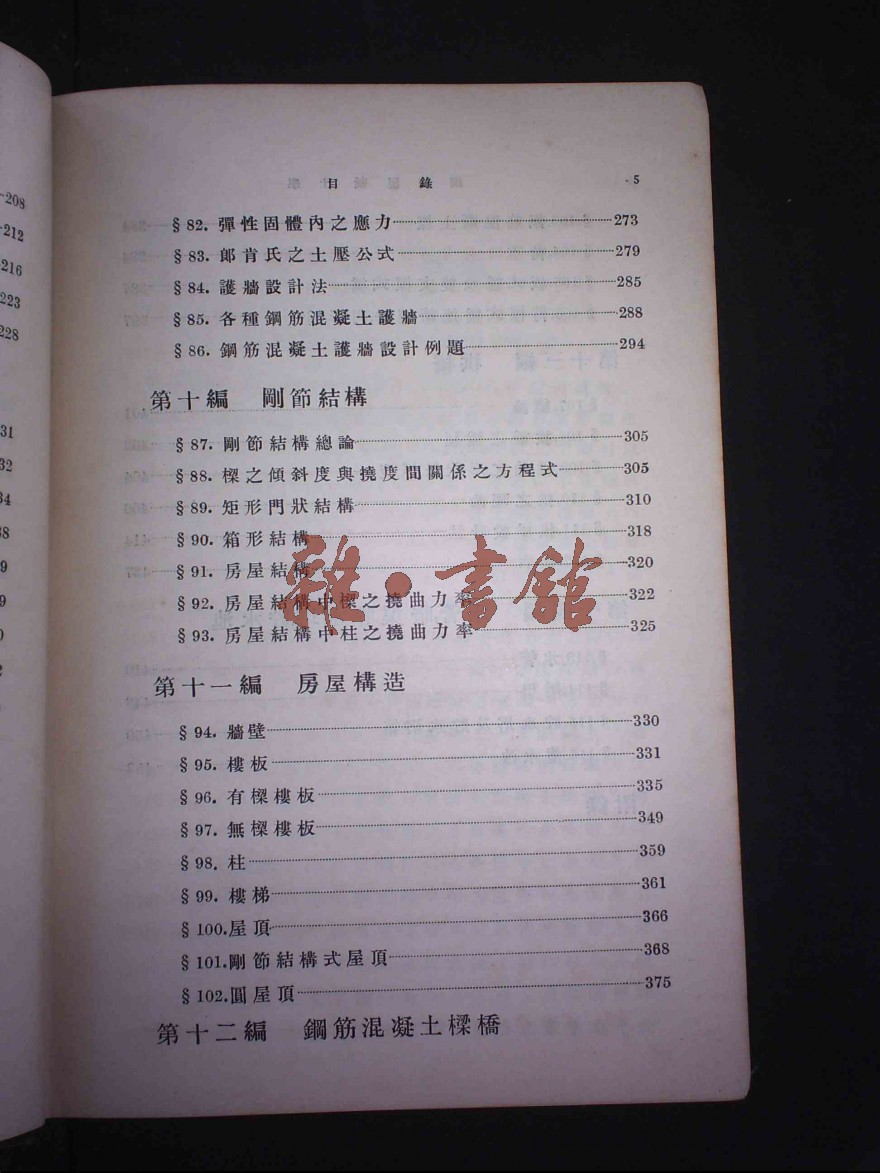 -208
-212
-216
223
228
31
32
34
38
9
9
0
2
目錄 5
§ 82. 彈性固體內之應力 273
§ 83. 郎肯氏之土壓公式 279
§ 84. 護牆設計法 285
§ 85. 各種鋼筋混凝土護牆 288
§ 86. 鋼筋混凝土護牆設計例題 294
第十編 剛節結構
§ 87. 剛節結構總論 305
§ 88. 樑之傾斜度與撓度間關係之方程式 305
§ 89. 矩形門狀結構 310
§ 90. 箱形結構 318
§ 91. 房屋結構 320
§ 92. 房屋結構中樑之撓曲力率 322
§ 93. 房屋結構中柱之撓曲力率 325
雜·書館
第十一編 房屋構造
§ 94. 牆壁 330
§ 95. 樓板 331
§ 96. 有樑樓板 335
§ 97. 無樑樓板 349
§ 98. 柱 359
§ 99. 樓梯 361
§ 100. 屋頂 366
§ 101. 剛節結構式屋頂 368
§ 102. 圓屋頂 375
第十二編 鋼筋混凝土樑橋